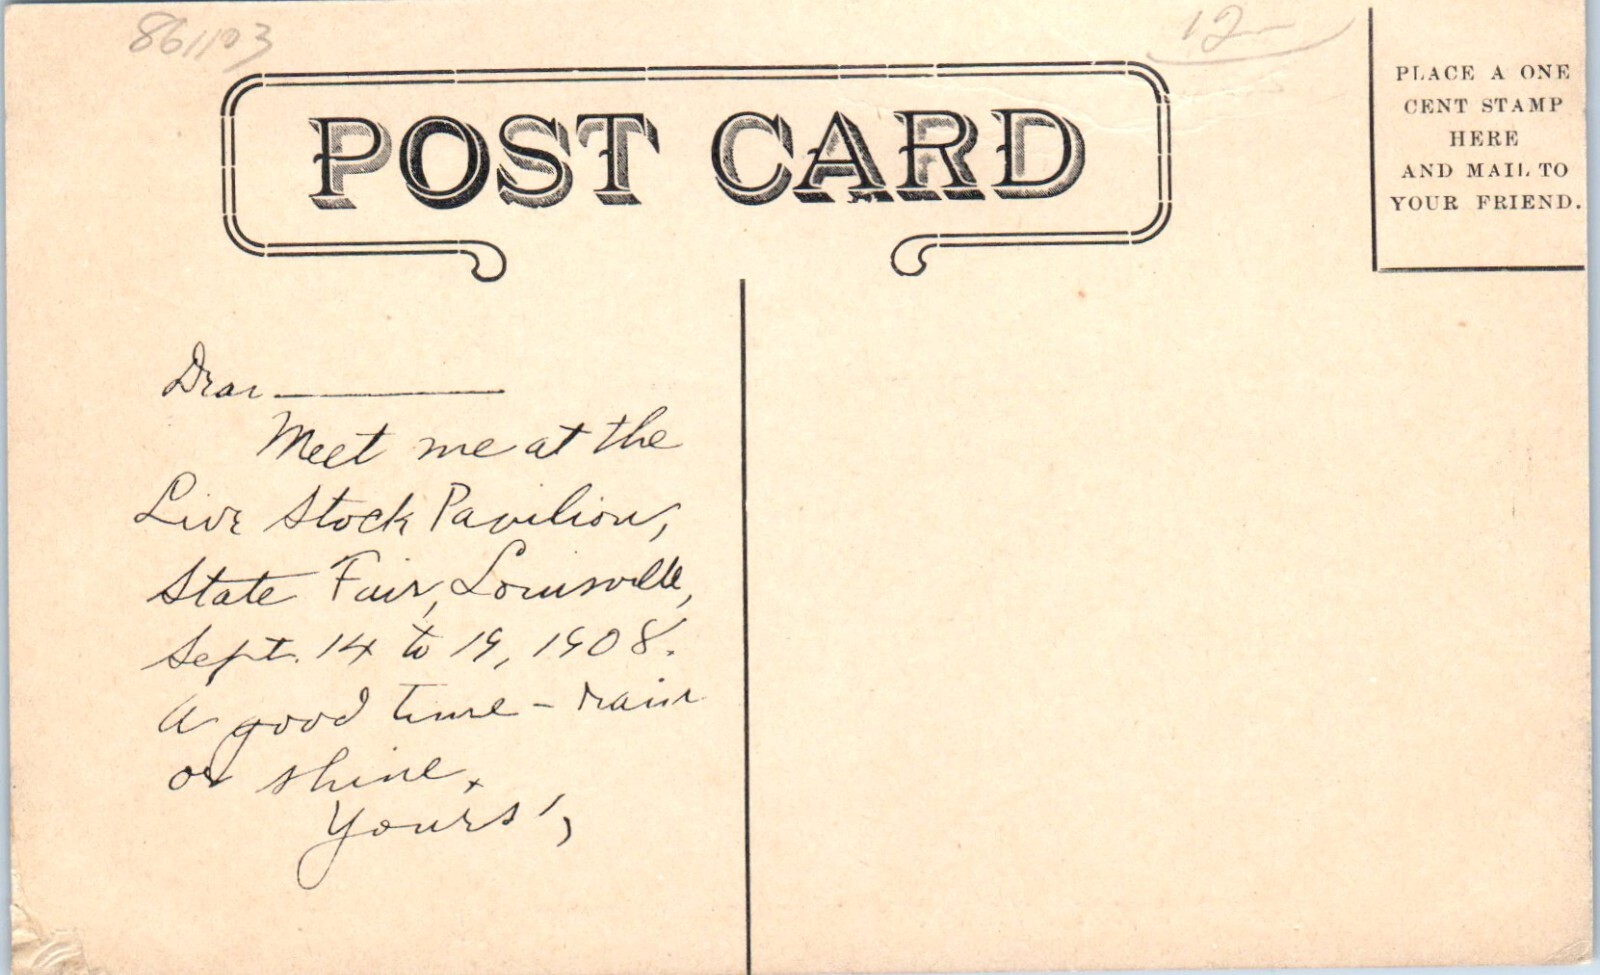 861103
12-
POST CARD
PLACE A ONE
CENT STAMP
HERE
AND MAIL TO
YOUR FRIEND.
Dear
Meet me at the
Live Stock Pavilion,
State Fair, Louisville,
Sept. 14 to 19, 1908.
A good time - rain
or shine.
Yours',